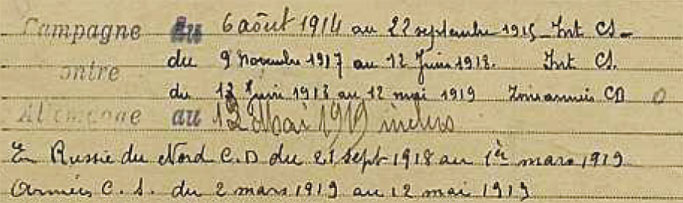 Campagne du 6 août 1914 au 22 septembre 1915 Int CS.
contre du 9 Novembre 1917 au 12 Juin 1918. Int CS.
du 13 Juin 1918 au 12 mai 1919 Zone armées CD
Allemagne au 12 Mai 1919 inclus
En Russie du Nord C.D du 21 sept 1918 au 1er mars 1919
Armées C. S. du 2 mars 1919 au 12 mai 1919